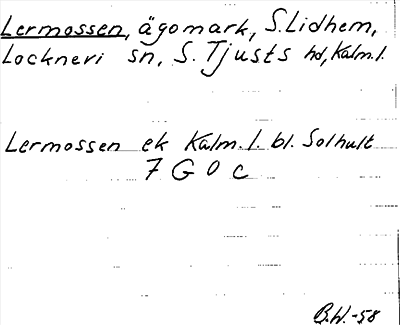 Lermossen, ägomark, S. Lidhem,
Lockneri sn, S. Tjusts hd, Kalm. l.
Lermossen ek Kalm. l. bl. Solhult
7 G 0 c
B.W.-58